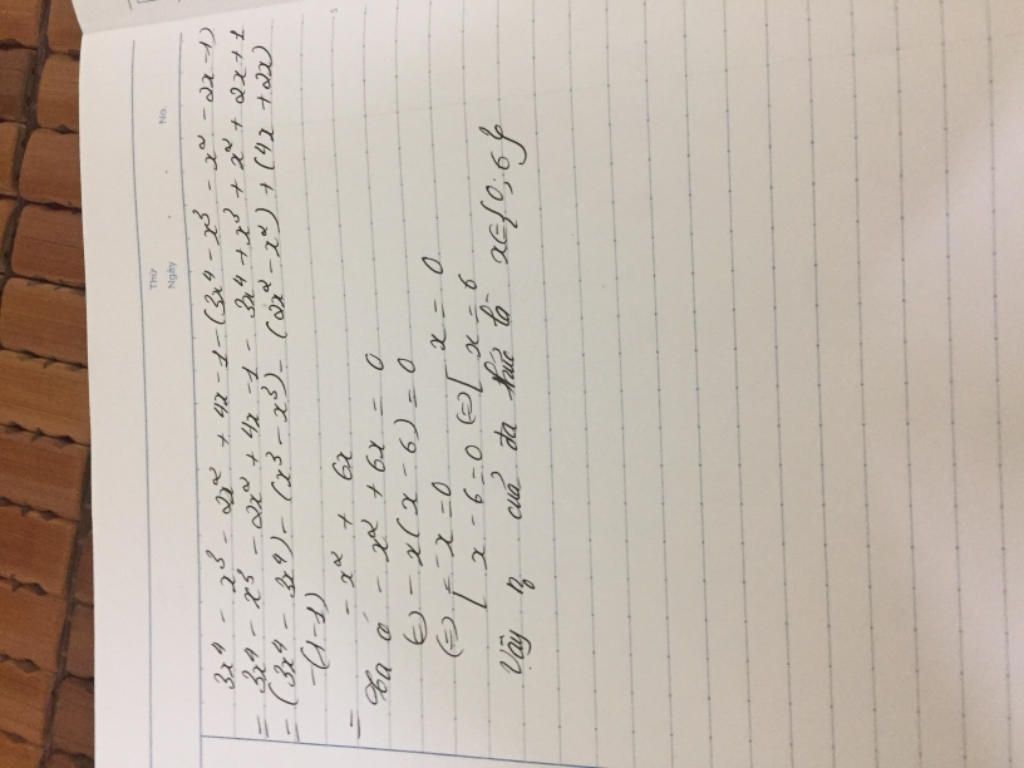 Thứ
Ngày
No.
3x⁴ - x³ - 2x² + 4x - 1 - (3x⁴ - x³ - x² - 2x - 1)
= 3x⁴ - x³ - 2x² + 4x - 1 - 3x⁴ + x³ + x² + 2x + 1
= (3x⁴ - 3x⁴) - (x³ - x³) - (2x² - x²) + (4x + 2x)
- (1 - 1)
= - x² + 6x
Ta có - x² + 6x = 0
(=) - x(x - 6) = 0
(=) [ - x = 0
[ x - 6 = 0 (=) [ x = 0
x = 6
Vậy n₀ của đa thức là x∈{0; 6}